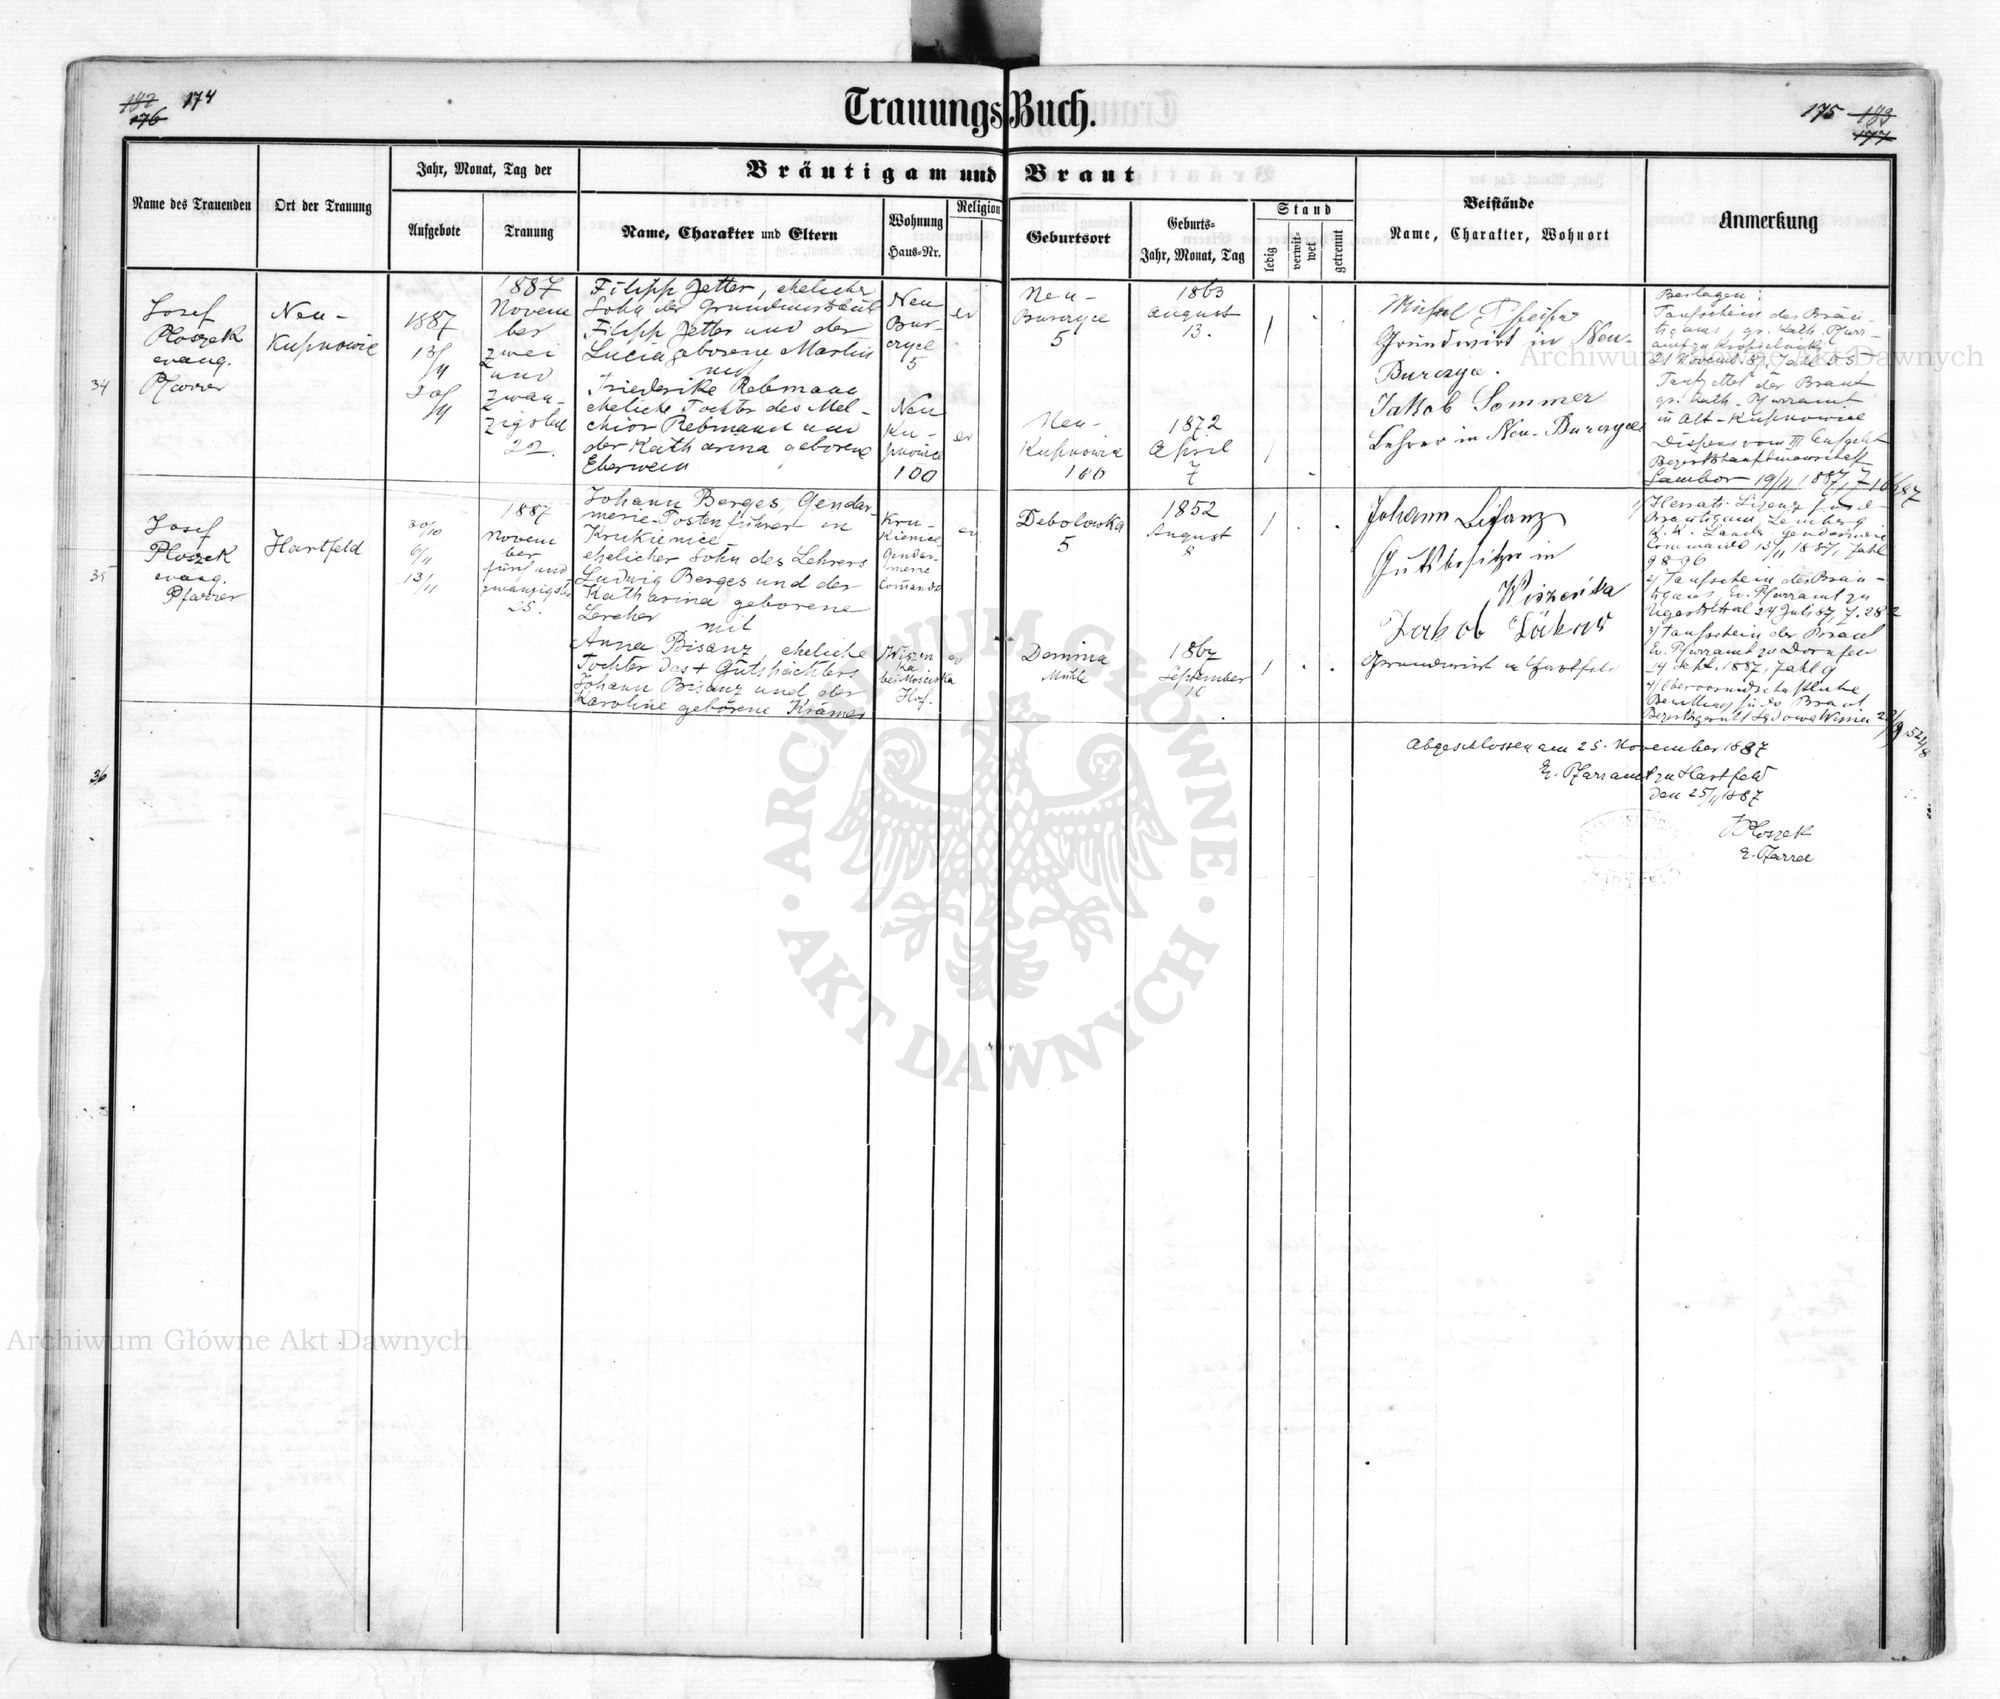 182 174
176
Trauungs Buch.
175 183
177
Name des Trauenden
Ort der Trauung
Jahr, Monat, Tag der
Aufgebote
Trauung
Bräutigam und Braut
Name, Charakter und Eltern
Wohnung
Haus-Nr.
Religion
Geburtsort
Geburts-
Jahr, Monat, Tag
Stand
ledig
verwit-
wet
getrennt
Beistände
Name, Charakter, Wohnort
Anmerkung
34
Josef
Ploszek
evang.
Pfarrer
Neu-
Kupnowice
1887
13/
11
20/
11
1887
Novem
ber
zwei
und
zwan-
zigsten
22.
Filipp Jetter, ehelicher
Sohn der
Filipp Jetter und der
Lucia geborene Martin
mit
Friederike Rebmann
eheliche Tochter des Mel-
chior Rebmann und
der Katharina geborene
Eberwein
Neu
Bur-
czyce
5
ev
Neu
Ku-
pnowice
100
ev
Neu-
Burczyce
5
1863
August
13.
Neu-
Kupnowice
100
1872
April
7
Grundwirt in Neu-
Burczyce.
Jakob Sommer
Lehrer in Neu-Burczyce
Beilagen:
Taufschein des Bräu-
tigams, gr. Kath. Pfarr-
21 Novemb 87, Zahl 255
Taufzettel der Braut
gr. Kath. Pfarramt
in Alt-Kupnowice
Dispens vom III Aufgebt
Bezirkshauptmannschaft
Sambor 19/11 1887,
35
Josef
Ploszek
evang.
Pfarrer
Hartfeld
30/10
6/11
13/11
1887
Novem
ber
fünf und
zwanzigster
25.
Johann Berges, Gendar-
merie-Postenführer in
Krukienice
ehelicher Sohn des Lehrers
Ludwig Berges und der
Katharina geborene
Lercher
mit
Anna Bisanz, eheliche
Tochter des + Gutspächters
Johann Bisanz und der
Karoline geborene Krämer
Kru-
kienice
Gendar-
merie
Comando
ev
Wiszen
ka
bei Mosciska
Hof.
ev
Debolowka
5
1852
August
8
Dominia
Mühle
1867
September
10
Johann Bisanz
Gutsbesitzer in
Wiszenka
Jakob
Grundwirt in Hartfeld
Bräutigam, Lemberg
K. K. Landes Gendarmerie
Commando 13/11 1887, Zahl
9896
2/ Taufschein des Bräu-
tigams, ev. Pfarramt zu
Ugartsthal 24 Juli 87, Z. 282
3/ Taufschein der Braut
Ev. Pfarramt zu Dornfeld
14 Sept. 1887, Zahl 9
4/ Obervormundschaftliche
Bewillag für die Braut
36
Abgeschlossen am 25. November 1887
E. Pfarramt zu Hartfeld
den 25/11 1887
JPloszek
E. Pfarrer
Archiwum Główne Akt Dawnych
ARCHIWUM GŁÓWNE · AKT DAWNYCH ·
Archiwum Główne Akt Dawnych